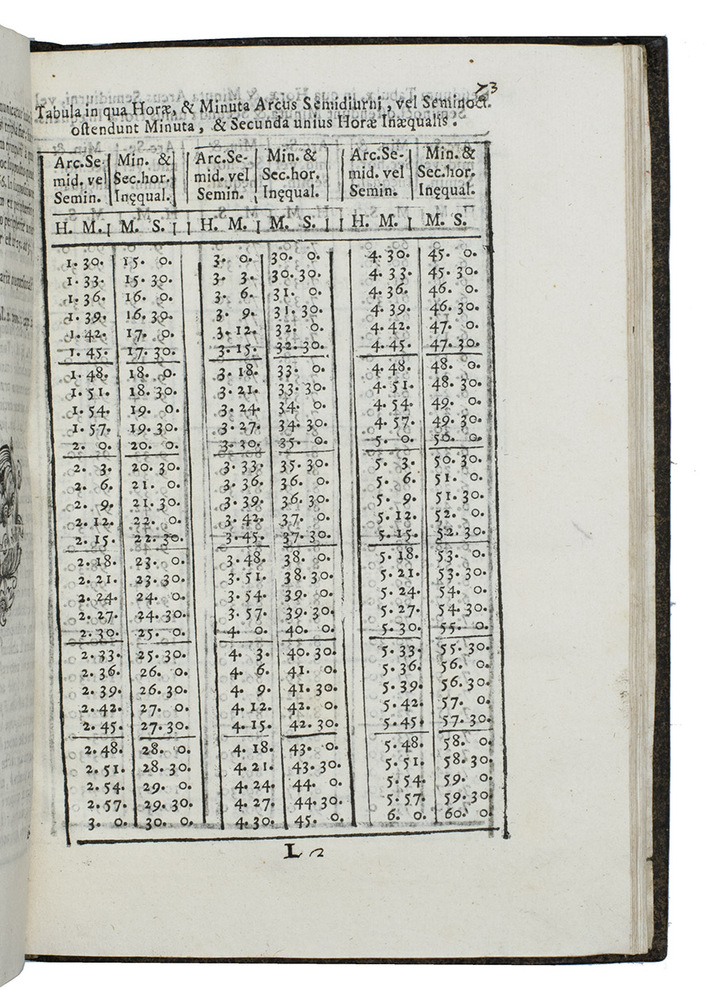 73
Tabula in qua Horæ, & Minuta Arcus Semidiurni, vel Seminoct.
ostendunt Minuta, & Secunda unius Horæ Inæqualis.
Arc.Se- Min. & Arc.Se- Min. & Arc.Se- Min. &
mid. vel Sec.hor. mid. vel Sec.hor. mid. vel Sec.hor.
Semin. Inęqual. Semin. Inęqual. Semin. Inęqual.
H. M. M. S. H. M. M. S. H. M. M. S.
1. 30. 15. 0. 3. 0. 30. 0. 4. 30. 45. 0.
1. 33. 15. 30. 3. 3. 30. 30. 4. 33. 45. 30.
1. 36. 16. 0. 3. 6. 31. 0. 4. 36. 46. 0.
1. 39. 16. 30. 3. 9. 31. 30. 4. 39. 46. 30.
1. 42. 17. 0. 3. 12. 32. 0. 4. 42. 47. 0.
1. 45. 17. 30. 3. 15. 32. 30. 4. 45. 47. 30.
1. 48. 18. 0. 3. 18. 33. 0. 4. 48. 48. 0.
1. 51. 18. 30. 3. 21. 33. 30. 4. 51. 48. 30.
1. 54. 19. 0. 3. 24. 34. 0. 4. 54. 49. 0.
1. 57. 19. 30. 3. 27. 34. 30. 4. 57. 49. 30.
2. 0. 20. 0. 3. 30. 35. 0. 5. 0. 50. 0.
2. 3. 20. 30. 3. 33. 35. 30. 5. 3. 50. 30.
2. 6. 21. 0. 3. 36. 36. 0. 5. 6. 51. 0.
2. 9. 21. 30. 3. 39. 36. 30. 5. 9. 51. 30.
2. 12. 22. 0. 3. 42. 37. 0. 5. 12. 52. 0.
2. 15. 22. 30. 3. 45. 37. 30. 5. 15. 52. 30.
2. 18. 23. 0. 3. 48. 38. 0. 5. 18. 53. 0.
2. 21. 23. 30. 3. 51. 38. 30. 5. 21. 53. 30.
2. 24. 24. 0. 3. 54. 39. 0. 5. 24. 54. 0.
2. 27. 24. 30. 3. 57. 39. 30. 5. 27. 54. 30.
2. 30. 25. 0. 4. 0. 40. 0. 5. 30. 55. 0.
2. 33. 25. 30. 4. 3. 40. 30. 5. 33. 55. 30.
2. 36. 26. 0. 4. 6. 41. 0. 5. 36. 56. 0.
2. 39. 26. 30. 4. 9. 41. 30. 5. 39. 56. 30.
2. 42. 27. 0. 4. 12. 42. 0. 5. 42. 57. 0.
2. 45. 27. 30. 4. 15. 42. 30. 5. 45. 57. 30.
2. 48. 28. 0. 4. 18. 43. 0. 5. 48. 58. 0.
2. 51. 28. 30. 4. 21. 43. 30. 5. 51. 58. 30.
2. 54. 29. 0. 4. 24. 44. 0. 5. 54. 59. 0.
2. 57. 29. 30. 4. 27. 44. 30. 5. 57. 59. 30.
3. 0. 30. 0. 4. 30. 45. 0. 6. 0. 60. 0.
L 2